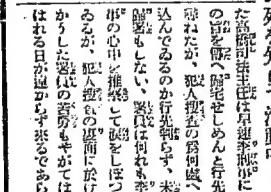 た高橋司法主任は早速李刑事に
の旨を傳へ歸宅せしめんと行先
尋ねたが、犯人捜査の爲何處へ
込んでゐるのか行先判らず、未
歸署もしない、署員は何れも李
事の心中を推察して涙をしぼつ
ゐるが、犯人捜査の裏面に於け
かうした署員の苦勞もやがては
はれる日が遠からず來るであら